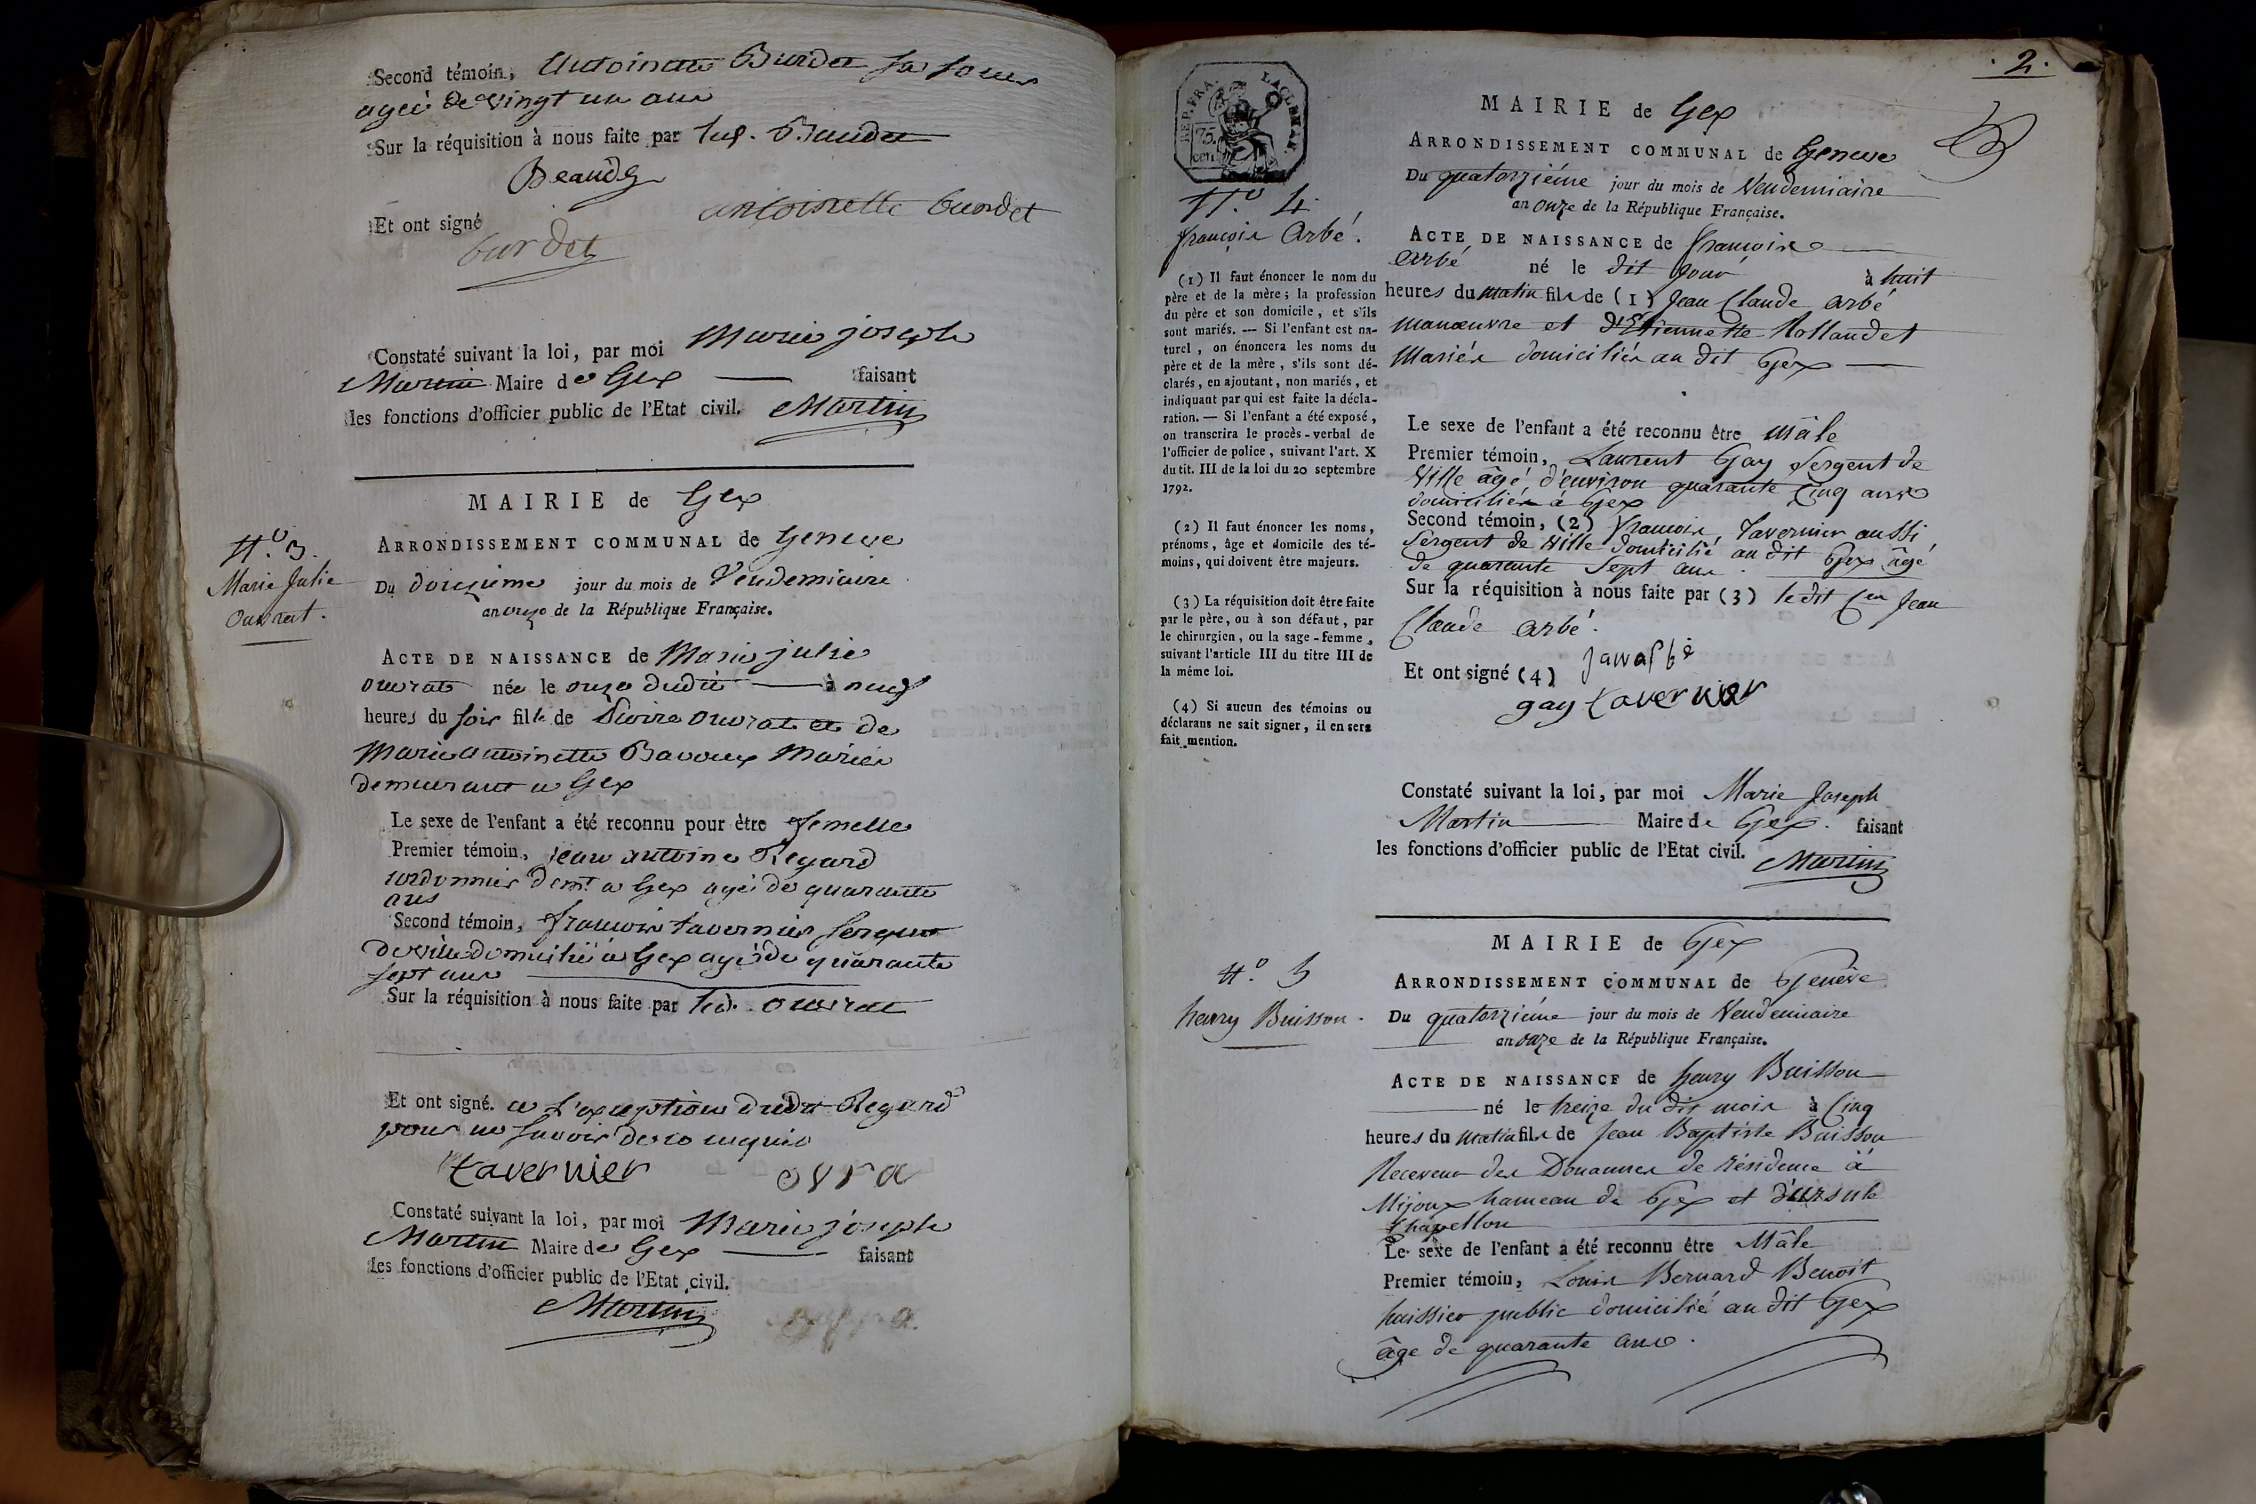 Second témoin, Antoinette Burdet sa soeur
agée de vingt un ans
Sur la réquisition à nous faite par
Beaudet
Et ont signé antoinette burdet
burdet
Constaté suivant la loi, par moi Marie joseph
Martin Maire de Gex faisant
les fonctions d'officier public de l'Etat civil. Martin
MAIRIE de Gex
N.º 3.
Marie Julie
Ouvrat.
ARRONDISSEMENT COMMUNAL de Geneve
Du douzieme jour du mois de Vendemiaire
an onze de la République Française.
ACTE DE NAISSANCE de Marie julie
ouvrat née le onze dudit à neuf
heures du soir fille de ouvrat et de
Marie antoinette Bavoux Mariés
demeurant a Gex
Le sexe de l'enfant a été reconnu pour être femelle
Premier témoin, jean antoine Regard
cordonnier demt a Gex agé de quarante
ans
Second témoin, francois tavernier sergent
de ville domicilié a Gex agé de quarante
sept ans
Sur la réquisition à nous faite par led. ouvrat
Et ont signé. a l'exception dudit Regard
pour ne savoir de ce requis
tavernier ovra
Constaté suivant la loi, par moi Marie joseph
Martin Maire de Gex faisant
les fonctions d'officier public de l'Etat civil.
Martin
. 2 .
REP. FRA.
75.
cen.
MAIRIE de Gex
ARRONDISSEMENT COMMUNAL de Geneve
Du quatorziéme jour du mois de Vendemiaire
an onze de la République Française.
N.º 4.
françois Arbé.
ACTE DE NAISSANCE de françois
arbé né le dit jour à huit
heures du matin fils de (1) Jean Claude arbé
manœuvre et d'Etiennette Rollandet
Mariés domiciliés au dit Gex
(1) Il faut énoncer le nom du
père et de la mère ; la profession
du père et son domicile, et s'ils
sont mariés. — Si l'enfant est na-
turel, on énoncera les noms du
père et de la mère, s'ils sont dé-
clarés, en ajoutant, non mariés, et
indiquant par qui est faite la décla-
ration. — Si l'enfant a été exposé,
on transcrira le procès-verbal de
l'officier de police, suivant l'art. X
du tit. III de la loi du 20 septembre
1792.
(2) Il faut énoncer les noms,
prénoms, âge et domicile des té-
moins, qui doivent être majeurs.
(3) La réquisition doit être faite
par le père, ou à son défaut, par
le chirurgien, ou la sage-femme,
suivant l'article III du titre III de
la même loi.
(4) Si aucun des témoins ou
déclarans ne sait signer, il en sera
fait mention.
Le sexe de l'enfant a été reconnu être mâle
Premier témoin, Laurent Gay Sergent de
Ville âgé d'environ quarante cinq ans
domiciliés à Gex
Second témoin, (2) francois Tavernier aussi
Sergent de Ville domicilié au dit Gex âgé
de quarante sept ans.
Sur la réquisition à nous faite par (3) le dit Cen Jean
Claude arbé.
Et ont signé (4)
gay tavernier
Constaté suivant la loi, par moi Marie Joseph
Martin Maire de Gex. faisant
les fonctions d'officier public de l'Etat civil. Martin
MAIRIE de Gex
N.º 5
henry Buisson.
ARRONDISSEMENT COMMUNAL de Genève
Du quatorziéme jour du mois de Vendemiaire
an onze de la République Française.
ACTE DE NAISSANCE de henry Buisson
né le treize du dit mois à Cinq
heures du matin fils de Jean Baptiste Buisson
Receveur des Douannes de résidence à
Mijoux hameau de Gex et d'ursule
Chapellon
Le sexe de l'enfant a été reconnu être Mâle
Premier témoin, Louis Bernard Benoit
huissier public domicilié au dit Gex
âge de quarante ans.